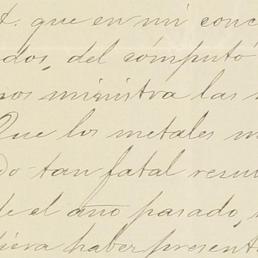 t. que en mi conc
dos, del cómputo
nos ministra las
Que los metales m
do tan fatal resu
de el año pasado,
diera haber presenta